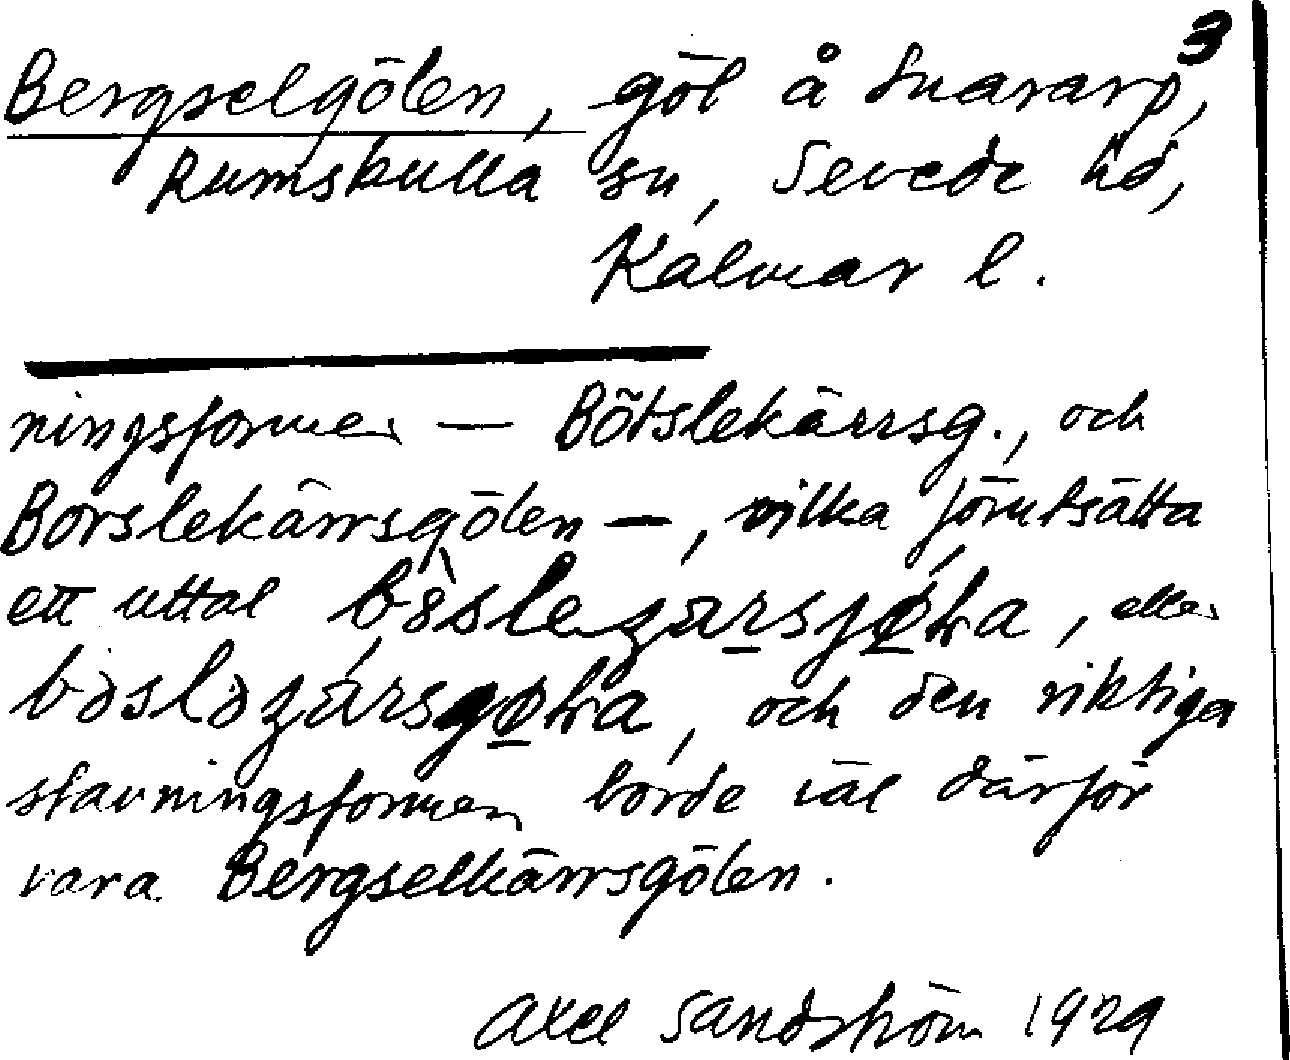 3
Bergselgölen, göl å Snararp,
Rumskulla sn, Sevede hd,
Kalmar l.
ningsformen — Bötslekärrsg., och
Börslekärrsgölen —, vilka förutsätta
ett uttal , eller
, och den riktiga
stavningsformen borde väl därför
vara Bergselkärrsgölen.
Axel Sandström 1929